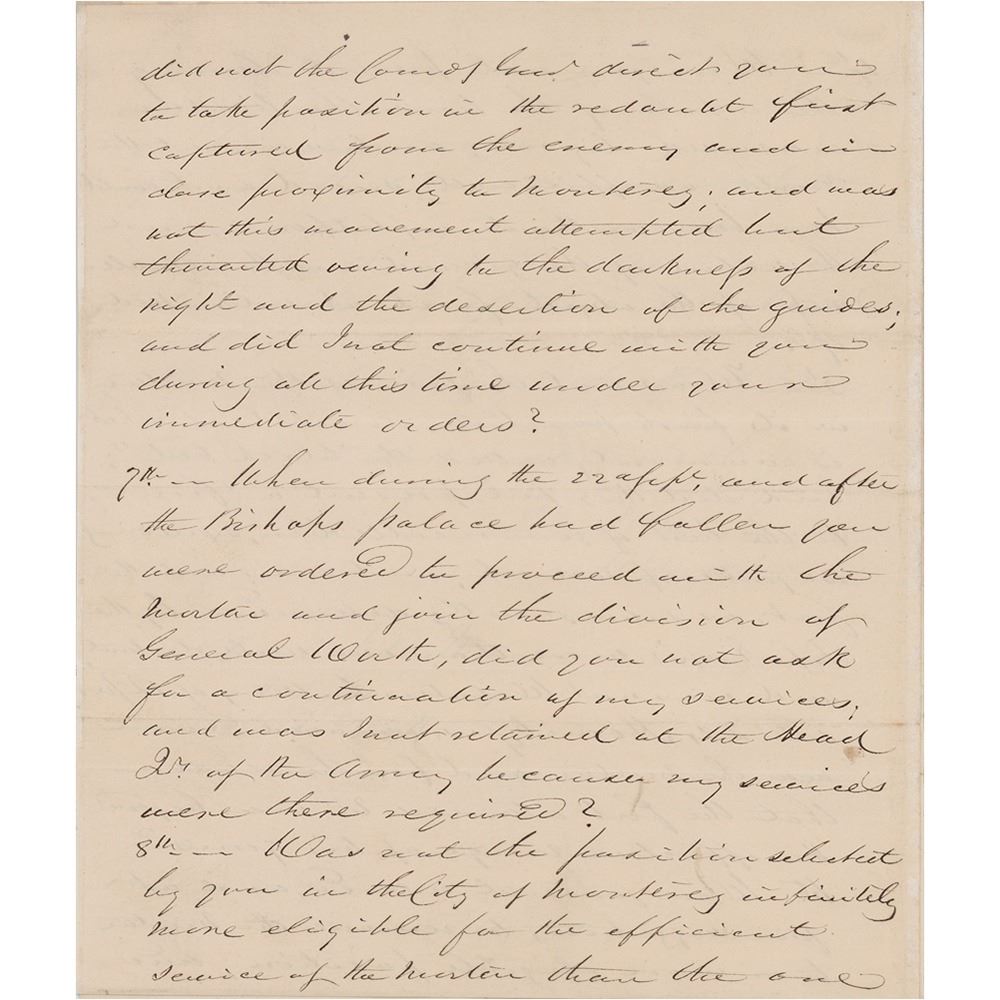 did not the Comdg Genl direct you
to take position in the redoubt first
captured from the enemy and in
close proximity to Monterey; and was
not this movement attempted but
thwarted owing to the darkness of the
night and the desertion of the guides;
and did I not continue with you
during all this time under your
immediate orders?
7th — When during the 22d Sept, and after
the Bishops palace had fallen you
were ordered to proceed with the
Mortar and join the division of
General Worth, did you not ask
for a continuation of my services;
and was I not retained at the Head
Qrs of the Army because my services
were there required?
8th — Was not the position selected
by you in the City of Monterey infinitely
more eligible for the efficient
service of the Mortar than the one